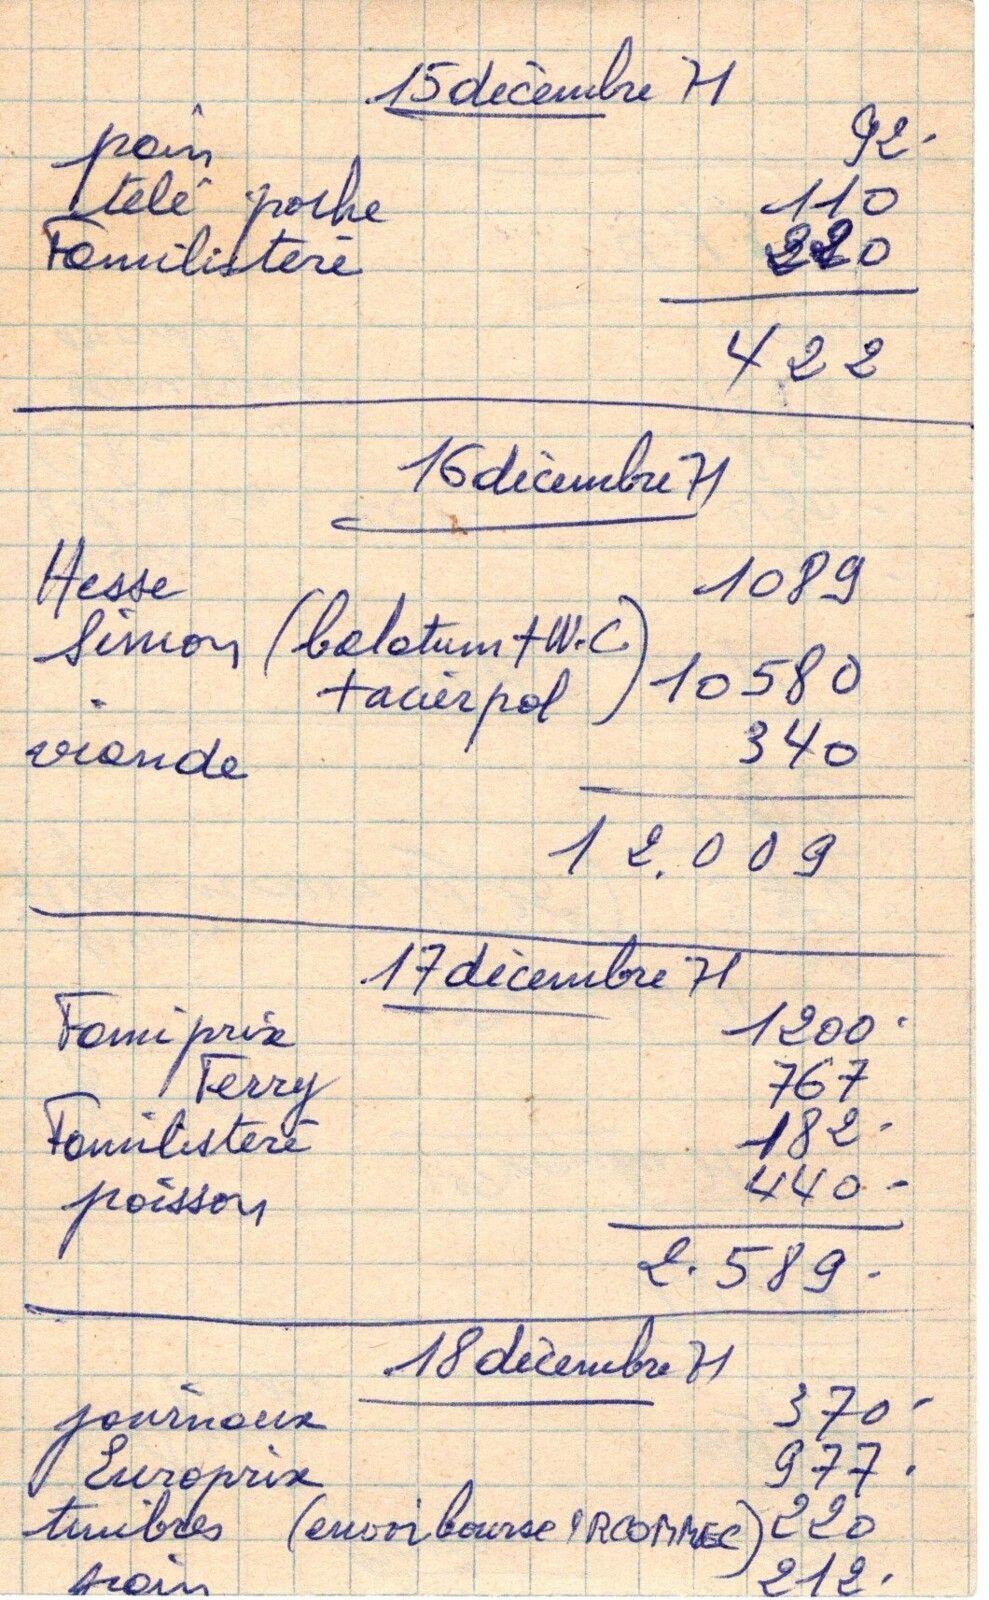 15 décembre 71
pain 92.
télé poche 110
Familistère 220
422
16 décembre 71
Hesse 1089
Simon (balatum + W.C.
+ acierpol) 10580
viande 340
12.009
17 décembre 71
Famiprix 1200.
Ferry 767
Familistère 182.
poisson 440.-
2.589.
18 décembre 71
journaux 370.
Europrix 977.
timbres (envoi bourse IRCOMMEC) 220
pain 212.